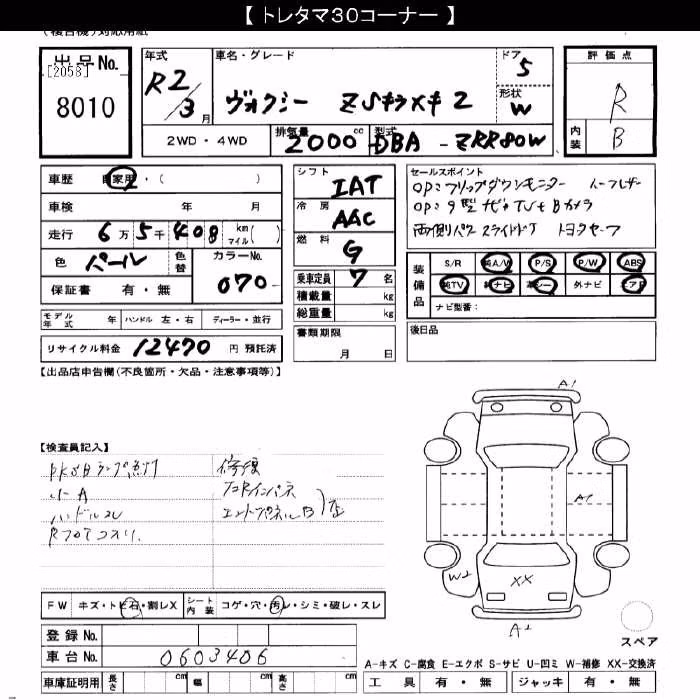 【 トレタマ30コーナー 】
(複合機)対応用紙
出品No.
[2058]
8010
年式
R2/3月
車名・グレード
ヴォクシー ZSキラメキ2
ドア
5
形状
W
2WD・4WD
排気量 2000cc
型式 DBA-ZRR80W
評価点
R
内装
B
車歴 自家用・( )
車検 年 月
走行 6万5千408 km マイル( )
色 パール
色替
カラーNo. 070
保証書 有・無
モデル年式 年
ハンドル 左・右
ディーラー・並行
リサイクル料金 12470 円 預託済
シフト IAT
冷房 AAC
燃料 G
乗車定員 7 名
積載量 kg
総重量 kg
書類期限
月 日
セールスポイント
OP:フリップダウンモニター ハーフレザー
OP:9型ナビ TV Bカメラ
両側パワースライドドア トヨタセーフ
装備品
S/R 純A/W P/S P/W ABS
純TV 純ナビ 革シート 外ナビ エアB
ナビ型番:
後日品
【出品店申告欄(不良箇所・欠品・注意事項等)】
【検査員記入】
小A
ハンドルスレ
修復
エンドパネルB
A1
A1
W2
XX
A2
スペア
FW キズ・トビ石・割レX
シート内装 コゲ・穴・汚レ・シミ・破レ・スレ
登録No.
車台No. 0603406
車庫証明用 長さ cm 幅 cm 高さ cm
A-キズ C-腐食 E-エクボ S-サビ U-凹ミ W-補修 XX-交換済
工具 有・無 ジャッキ 有・無